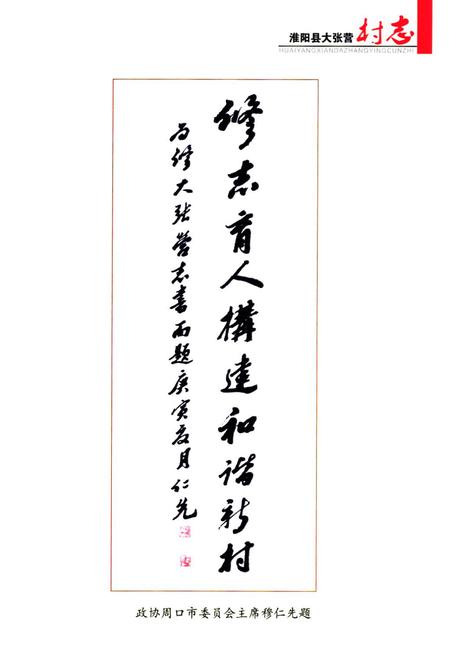 淮阳县大张营村志
HUAIYANGXIANDAZHANGYINGCUNZHI
修志育人構建和谐新村
为修大张营志书而题庚寅夏月仁先
政协周口市委员会主席穆仁先题